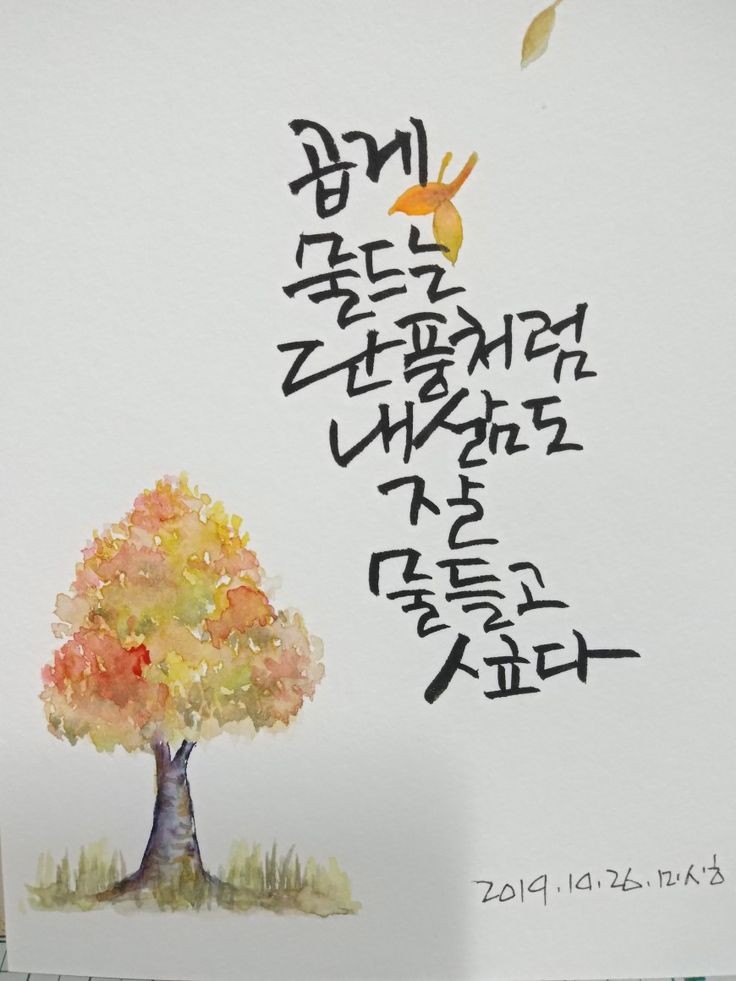 곱게
물드는
단풍처럼
내 삶도
잘
물들고
싶다
2019.10.26.